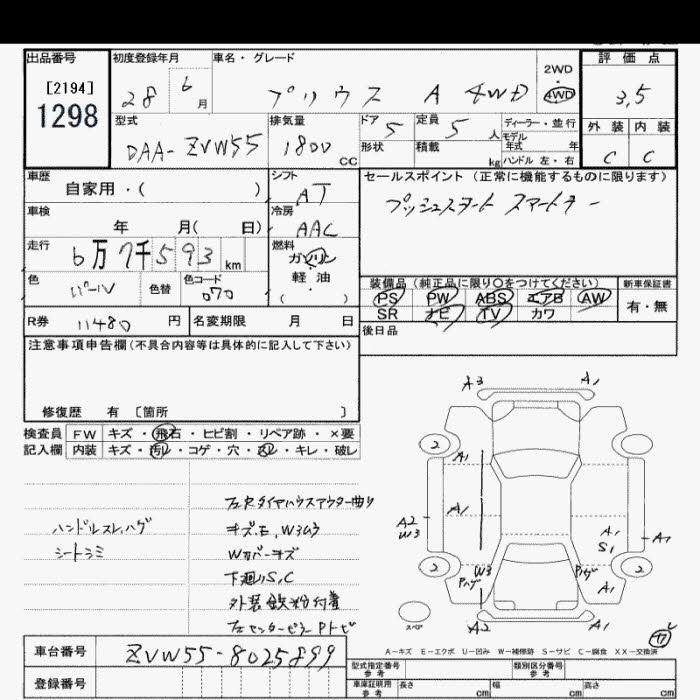 出品番号 初度登録年月 車名・グレード 2WD・4WD 評価点
[2194]
1298
28 6月 プリウス A 4WD 3.5
型式 DAA-ZVW55 排気量 1800 CC
ドア 5 定員 5人 ディーラー・並行
モデル年式 年
形状 積載 kg ハンドル 左・右
外装 内装
C C
車歴 自家用・( )
シフト AT
セールスポイント (正常に機能するものに限ります)
プッシュスタート スマートキー
車検 年 月( 日)
冷房 AAC
走行 6万7千593km
燃料 ガソリン・軽油
( )
色 パール 色替 色コード 070
装備品 (純正品に限り○をつけてください) 新車保証書
PS PW ABS エアB AW 有・無
SR ナビ TV カワ
R券 11480 円 名変期限 月 日
後日品
注意事項申告欄(不具合内容等は具体的に記入して下さい)
修復歴 有 〔箇所 〕
検査員 FW キズ・飛石・ヒビ割・リペア跡・×要
記入欄 内装 キズ・汚レ・コゲ・穴・スレ・キレ・破レ
左Rタイヤハウスアウター曲り
ハンドルスレ,ハゲ
シートシミ
キズ
Wカバーキズ
下廻りS,C
外装鉄粉付着
左センターピラーPトビ
A3 A1
2
A1
A1
A2
W3
A1
S1
A1
2 W3 Pハゲ Pハゲ 2
A1
スペア
A2
A-キズ E-エクボ U-凹み W-補修跡 S-サビ C-腐食 XX-交換済
車台番号 ZVW55-8025899
登録番号
型式指定番号 参考 類別区分番号 参考
車庫証明用 参考 長さ cm 幅 cm 高さ cm